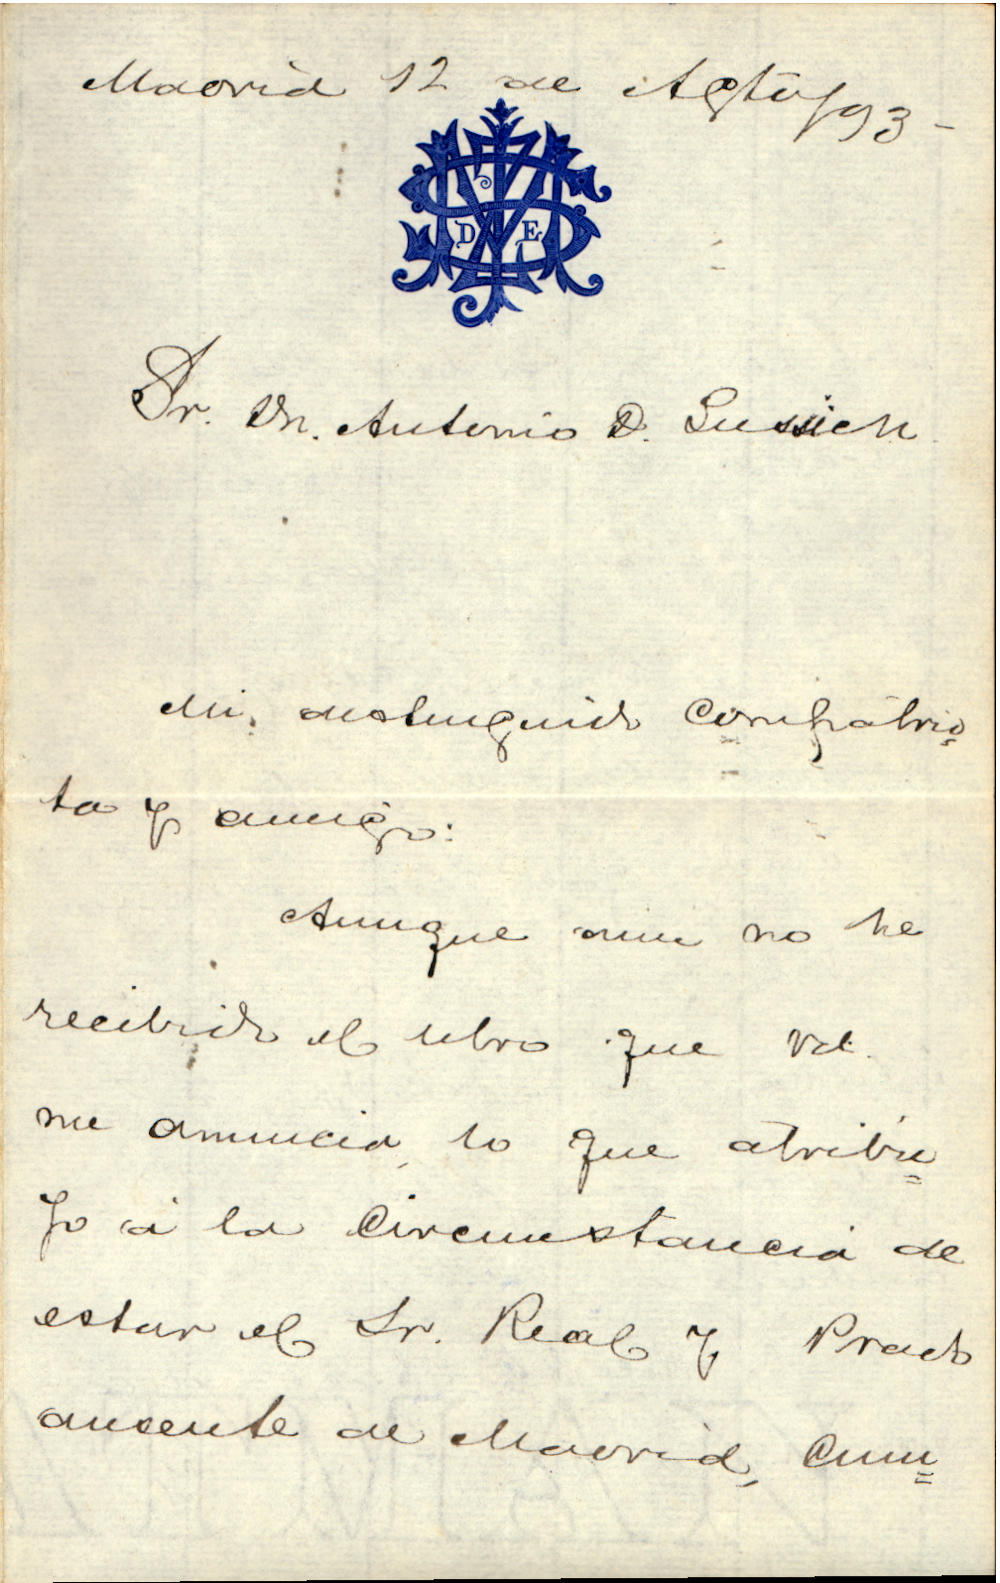 Madrid 12 de Agto/93-
D E
Sr. Dn. Antonio D. Lussich
Mi distinguido compatrio=
ta y amigo:
Aunque aun no he
recibido el libro que Vd.
me anuncia, lo que atribu=
yo á la circunstancia de
estar el Sr. Real y Prado
ausente de Madrid, cum=